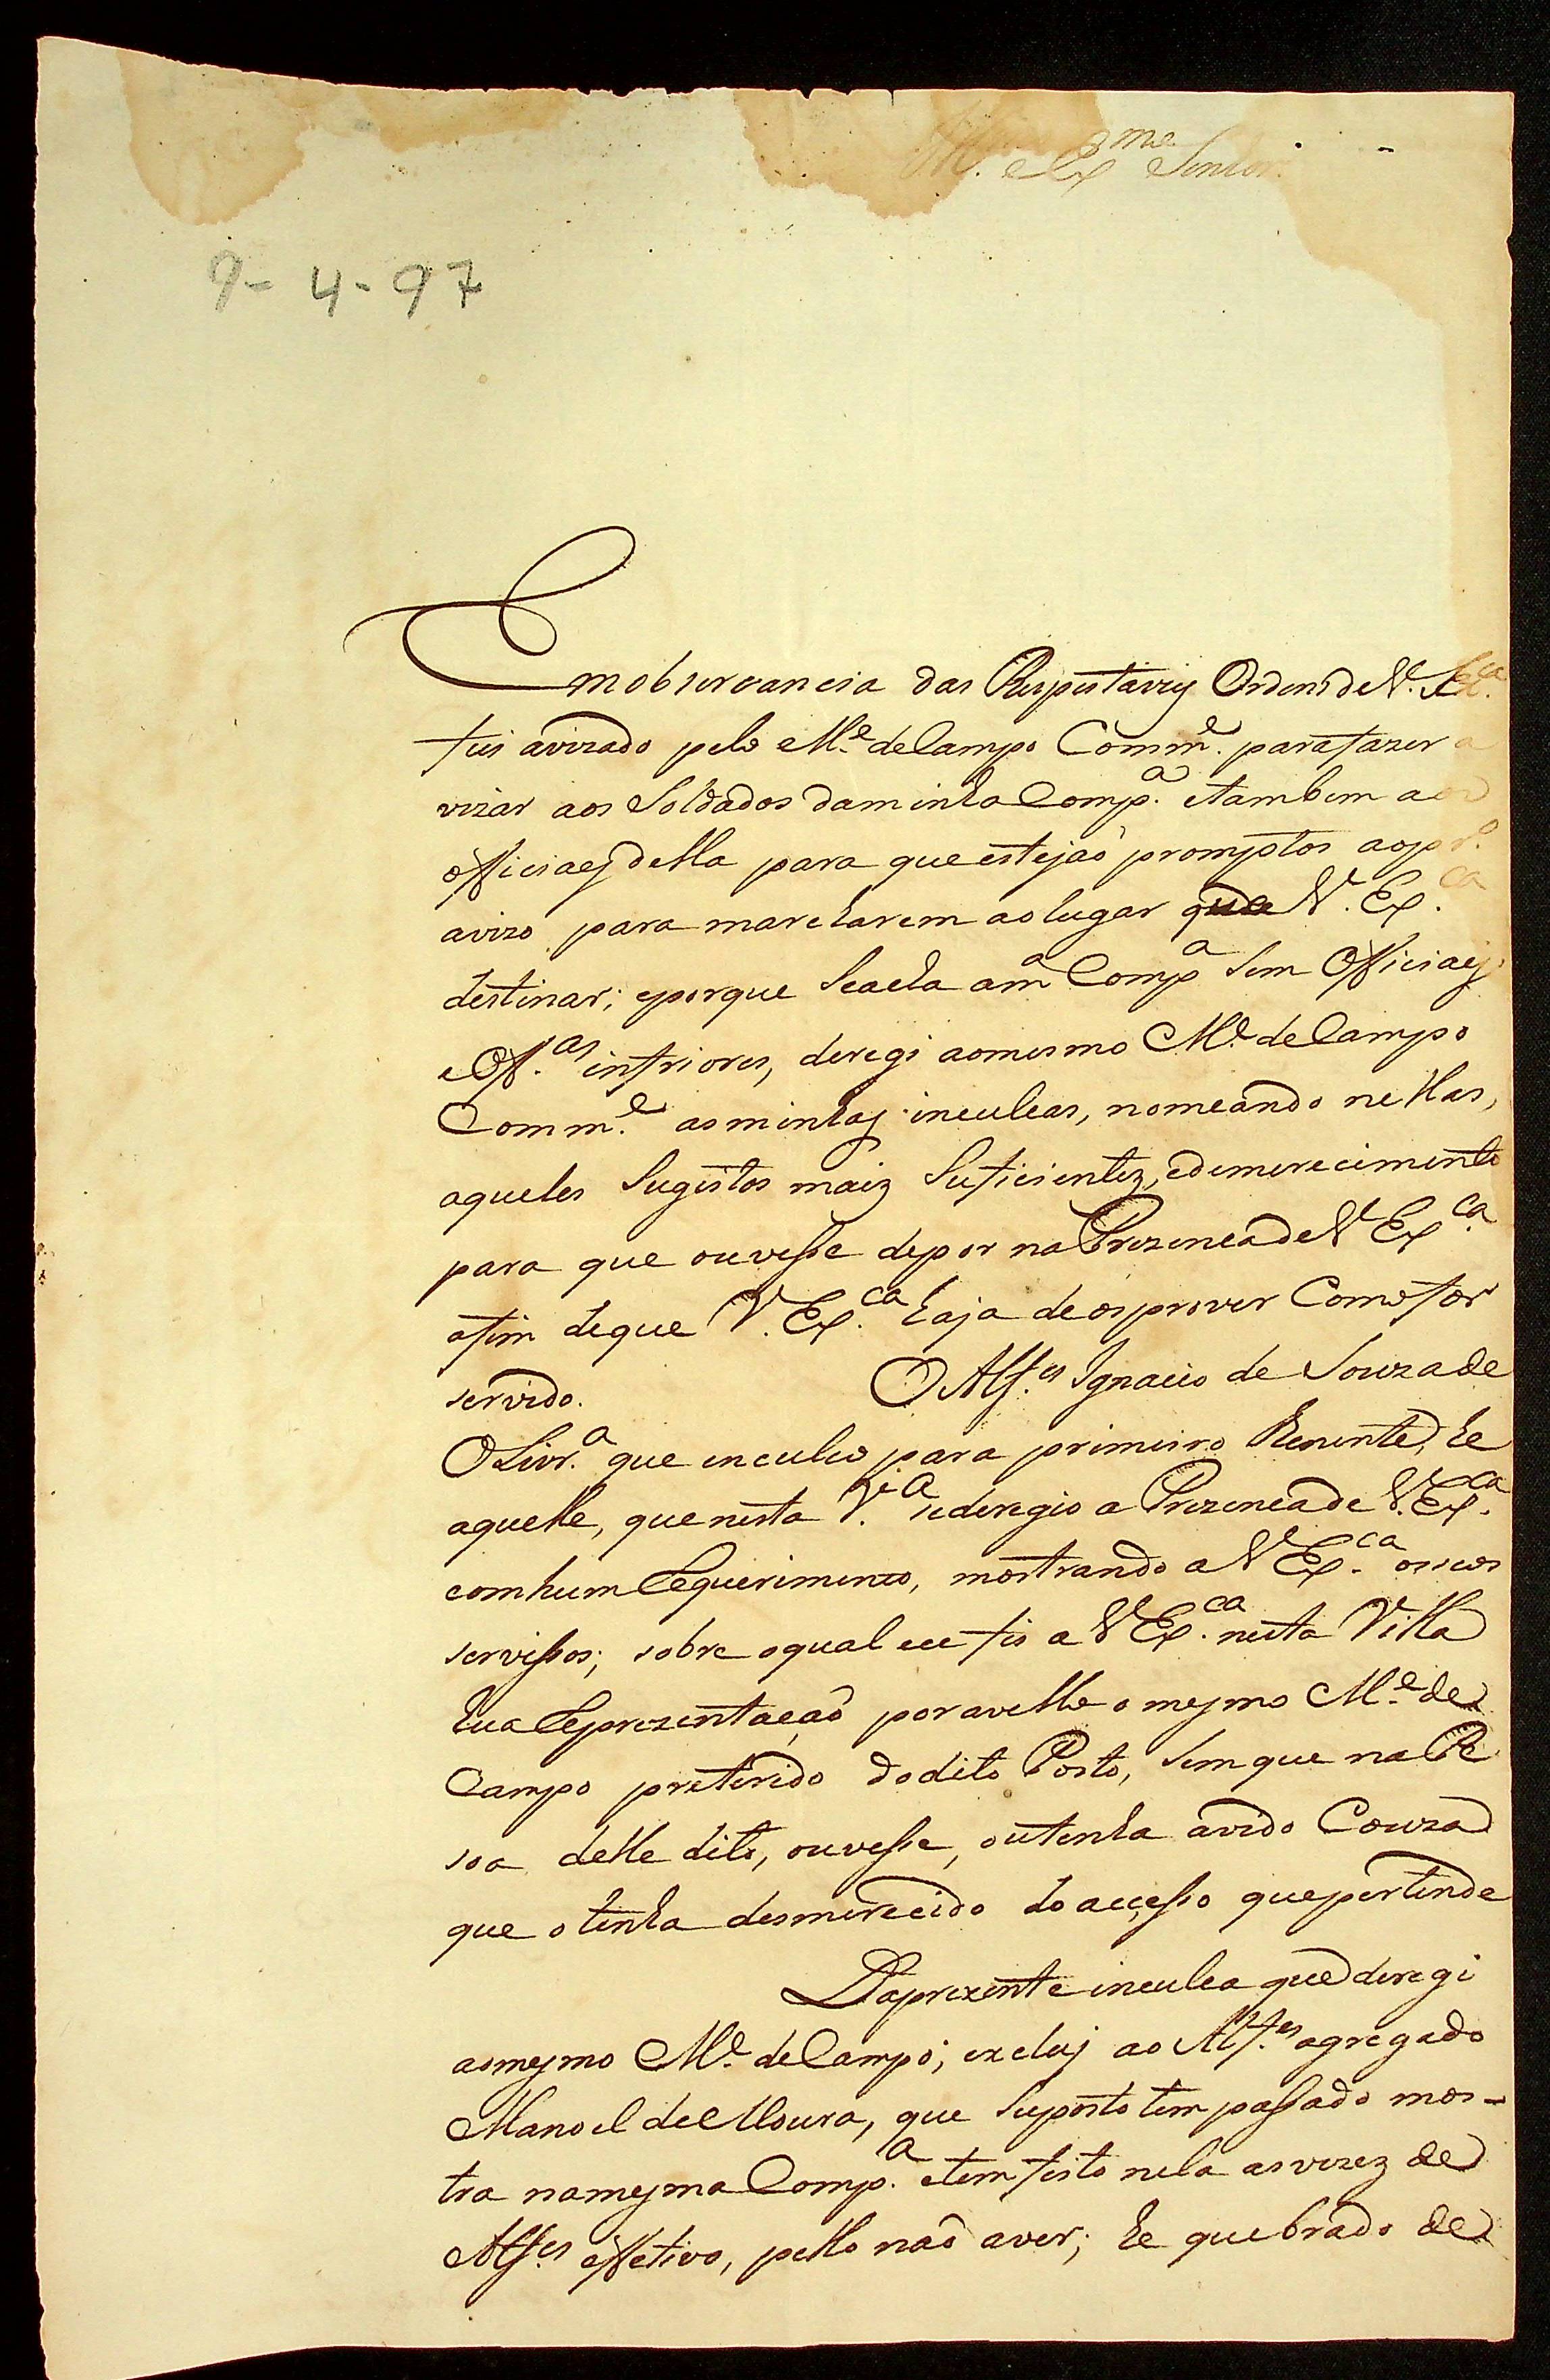 Ill. e Ex.me Senhor.
9-4-97
Em observancia das Respeitaveis Ordens de V. Ex.ca
fui avizado pelo M.e de Campo Comm.e para fazer a
vizar aos Soldados da minha Comp.a e tambem aos
officiaes della para que estejaõ promptos ao pr.o
avizo para marcharem ao lugar que V. Ex.ca
destinar; e porque Seacha a m.a Comp.a Sem Officiaes
e Off.as inferiores, deregi ao mesmo M.e de Campo
Comm.e as minhas inculcas, nomeando nellas,
aqueles Sugeitos maiz Suficientez, e de merecimento
para que ouvesse de por na Prezenca de V Ex.ca
afim de que V. Ex.ca haja de os prover Como for
servido. O Alf.es Ignacio de Souza de
Olivr.a que inculco para primeiro Tenente, he
aquelle, que nesta V.a se deregio a Prezenca de V. Ex.ca
com hum Requerimento, mostrando a V Ex.ca os seos
servissos; sobre o qual eu fis a V Ex.ca nesta Villa
hua Reprezentaçaõ por avello o mesmo M.e de
Campo preterido do dito Posto, Sem que na Pe
soa delle dito, ouvesse, ou tenha avido Couza
que o tenha desmerecido do accesso que pertende
Da prezente inculca que deregi
ao mesmo M.e de Campo; excluj ao Alf.es agregado
Manoel de Moura, que Suposto tem passado mos-
tra na mesma Comp.a e tem feito nela as vezez de
Alf.es effetivo, pello naõ aver; he quebrado de